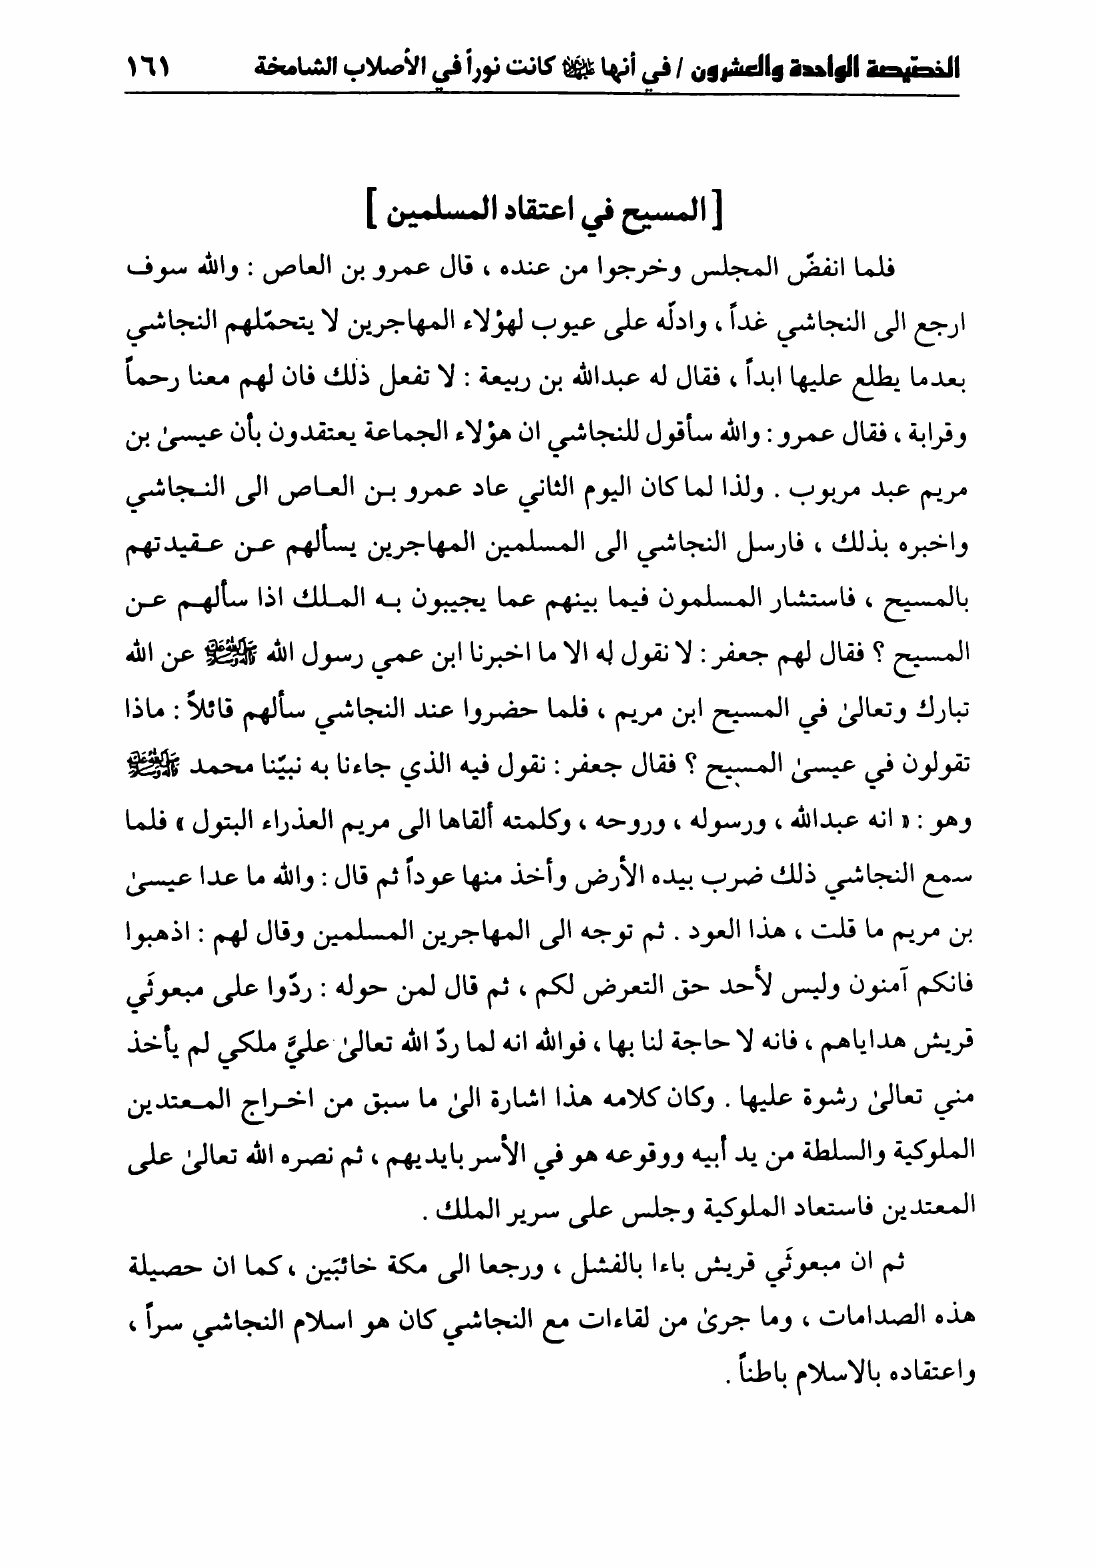 الخصّيصة الواحدة والعشرون / في أنها ﷺ كانت نوراً في الأصلاب الشامخة ١٦١
[ المسيح في اعتقاد المسلمين ]
فلما انفضّ المجلس وخرجوا من عنده ، قال عمرو بن العاص : والله سوف
ارجع الى النجاشي غداً ، وادلّه على عيوب لهؤلاء المهاجرين لا يتحمّلهم النجاشي
بعدما يطلع عليها ابداً ، فقال له عبدالله بن ربيعة : لا تفعل ذلك فان لهم معنا رحماً
وقرابة ، فقال عمرو : والله سأقول للنجاشي ان هؤلاء الجماعة يعتقدون بأن عيسىٰ بن
مريم عبد مربوب . ولذا لما كان اليوم الثاني عاد عمرو بن العاص الى النجاشي
واخبره بذلك ، فارسل النجاشي الى المسلمين المهاجرين يسألهم عن عقيدتهم
بالمسيح ، فاستشار المسلمون فيما بينهم عما يجيبون به الملك اذا سألهم عن
المسيح ؟ فقال لهم جعفر : لا نقول له الا ما اخبرنا ابن عمي رسول الله ﷺ عن الله
تبارك وتعالىٰ في المسيح ابن مريم ، فلما حضروا عند النجاشي سألهم قائلاً : ماذا
تقولون في عيسىٰ المسيح ؟ فقال جعفر : نقول فيه الذي جاءنا به نبيّنا محمد ﷺ
وهو : « انه عبدالله ، ورسوله ، وروحه ، وكلمته ألقاها الى مريم العذراء البتول » فلما
سمع النجاشي ذلك ضرب بيده الأرض وأخذ منها عوداً ثم قال : والله ما عدا عيسىٰ
بن مريم ما قلت ، هذا العود . ثم توجه الى المهاجرين المسلمين وقال لهم : اذهبوا
فانكم آمنون وليس لأحد حق التعرض لكم ، ثم قال لمن حوله : ردّوا على مبعوثَي
قريش هداياهم ، فانه لا حاجة لنا بها ، فوالله انه لما ردّ الله تعالىٰ عليَّ ملكي لم يأخذ
مني تعالىٰ رشوة عليها . وكان كلامه هذا اشارة الىٰ ما سبق من اخراج المعتدين
الملوكية والسلطة من يد أبيه ووقوعه هو في الأسر بايديهم ، ثم نصره الله تعالىٰ على
المعتدين فاستعاد الملوكية وجلس على سرير الملك .
ثم ان مبعوثَي قريش باءا بالفشل ، ورجعا الى مكة خائبَين ، كما ان حصيلة
هذه الصدامات ، وما جرىٰ من لقاءات مع النجاشي كان هو اسلام النجاشي سراً ،
واعتقاده بالاسلام باطناً .